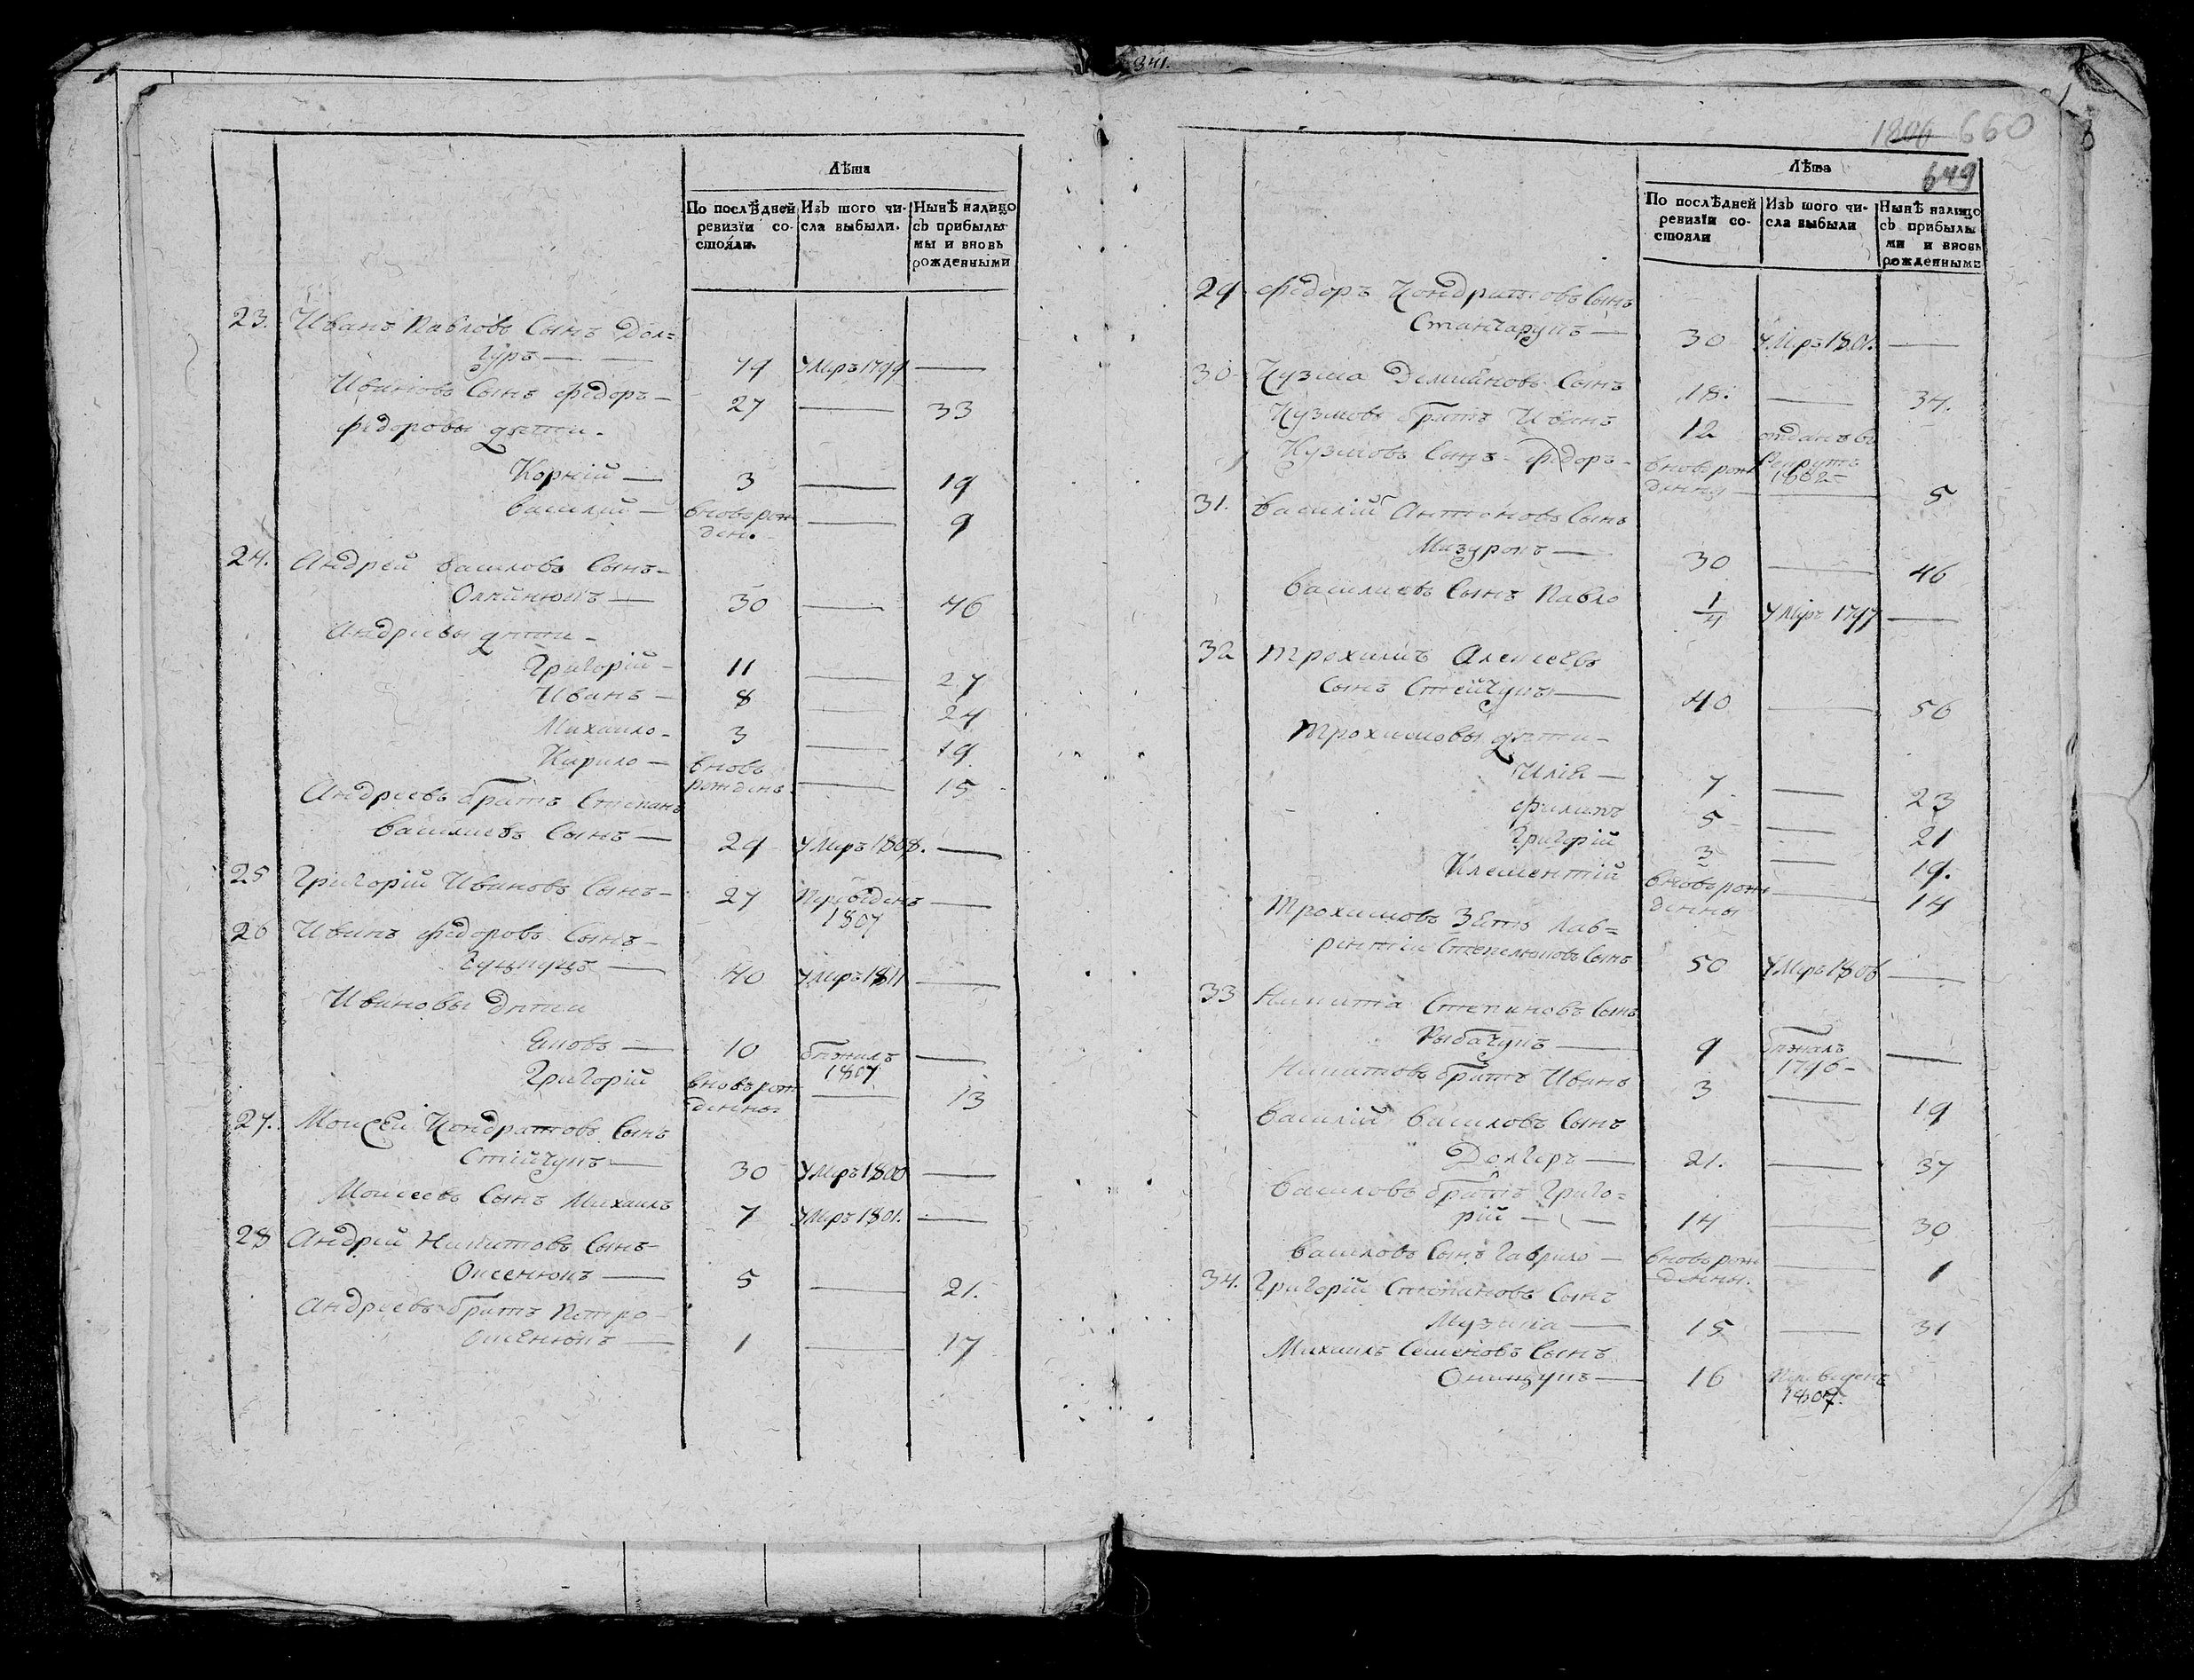 341.
Лѣта
По послѣдней ревизїи состояли.
Изъ того числа выбыли.
Нынѣ налицо съ прибылыми и вновь рожденными
23. Иванъ Павловъ Сынъ Дол=
гуръ — 79 Умръ 1799 —
Ивановъ Сынъ Федоръ — 27 — 33
Федоровы дѣти.
Корнїй — 3 — 19
Василїй — вновь рож
ден. — 9
24. Андрей Василовъ Сынъ —
30 — 46
Андреевы дѣти —
Григорїй — 11 — 27
Иванъ — 8 — 24
Михайло — 3 — 19
Кирило — вновь
рожденъ — 15
Андреевъ братъ Степанъ
Василиевъ Сынъ — 29 Умръ 1808. —
25 Григорїй Ивановъ Сынъ — 27 Переведенъ —
1807
26 Иванъ Федоровъ Сынъ —
40 Умръ 1811 —
Ивановы Дѣти
Яковъ — 10 бѣжалъ —
1807
Григорїй вновь рож
денны — 13
27. Моисей Кондратовъ Сынъ
Стїйчукъ — 30 Умръ 1800 —
Моисеевъ Сынъ Михаилъ 7 Умръ 1801. —
28 Андрей Никитовъ Сынъ —
Оксенюкъ — 5 — 21.
Андреевъ братъ Петро
Оксенюкъ — 1 — 17
1806 660
649
Лѣта
По послѣдней ревизїи состояли
Изъ того числа выбыли
Нынѣ налицо съ прибылыми и вновь рожденными
29 Федоръ Кондратовъ Сынъ
30 Умръ 1801. —
30 Кузма Демияновъ Сынъ 18. — 34.
Кузмовъ братъ Иванъ 12 отданъ въ
Рекруты
1802 —
Кузмовъ Сынъ — Федоръ — вновь рож
денны — 5
31. Василїй Антоновъ Сынъ
Мазурокъ — 30 — 46
Василиевъ Сынъ Павло 1/4 Умръ 1797 —
32 Трохимъ Алексеевъ
Сынъ Стейчукъ — 40 — 56
Трохимовы дѣти —
Илїя — 7 — 23
Филипъ 5 — 21
Григорїй 3 — 19.
Клементїй вновь рож
денны — 14
Трохимовъ Зять Лав=
рентїй Сынъ 50 Умръ 1806 —
33 Никита Степановъ Сынъ
Рыбачукъ — 9 бѣжалъ —
1796 —
Никитовъ братъ Иванъ 3 — 19
Василїй Василовъ Сынъ
Долгеръ — 21. — 37
Василовъ братъ Григо=
рїй — 14 — 30
Василовъ Сынъ Гаврило — вновь рож
денны. — 1
34. Григорїй Степановъ Сынъ
Музыка — 15 — 31
Михаилъ Семеновъ Сынъ
Онищукъ — 16 Переведенъ
1807.